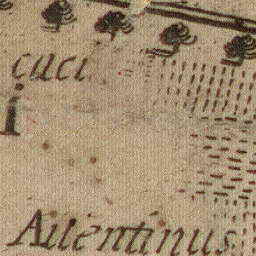 caci
i
Auentinus